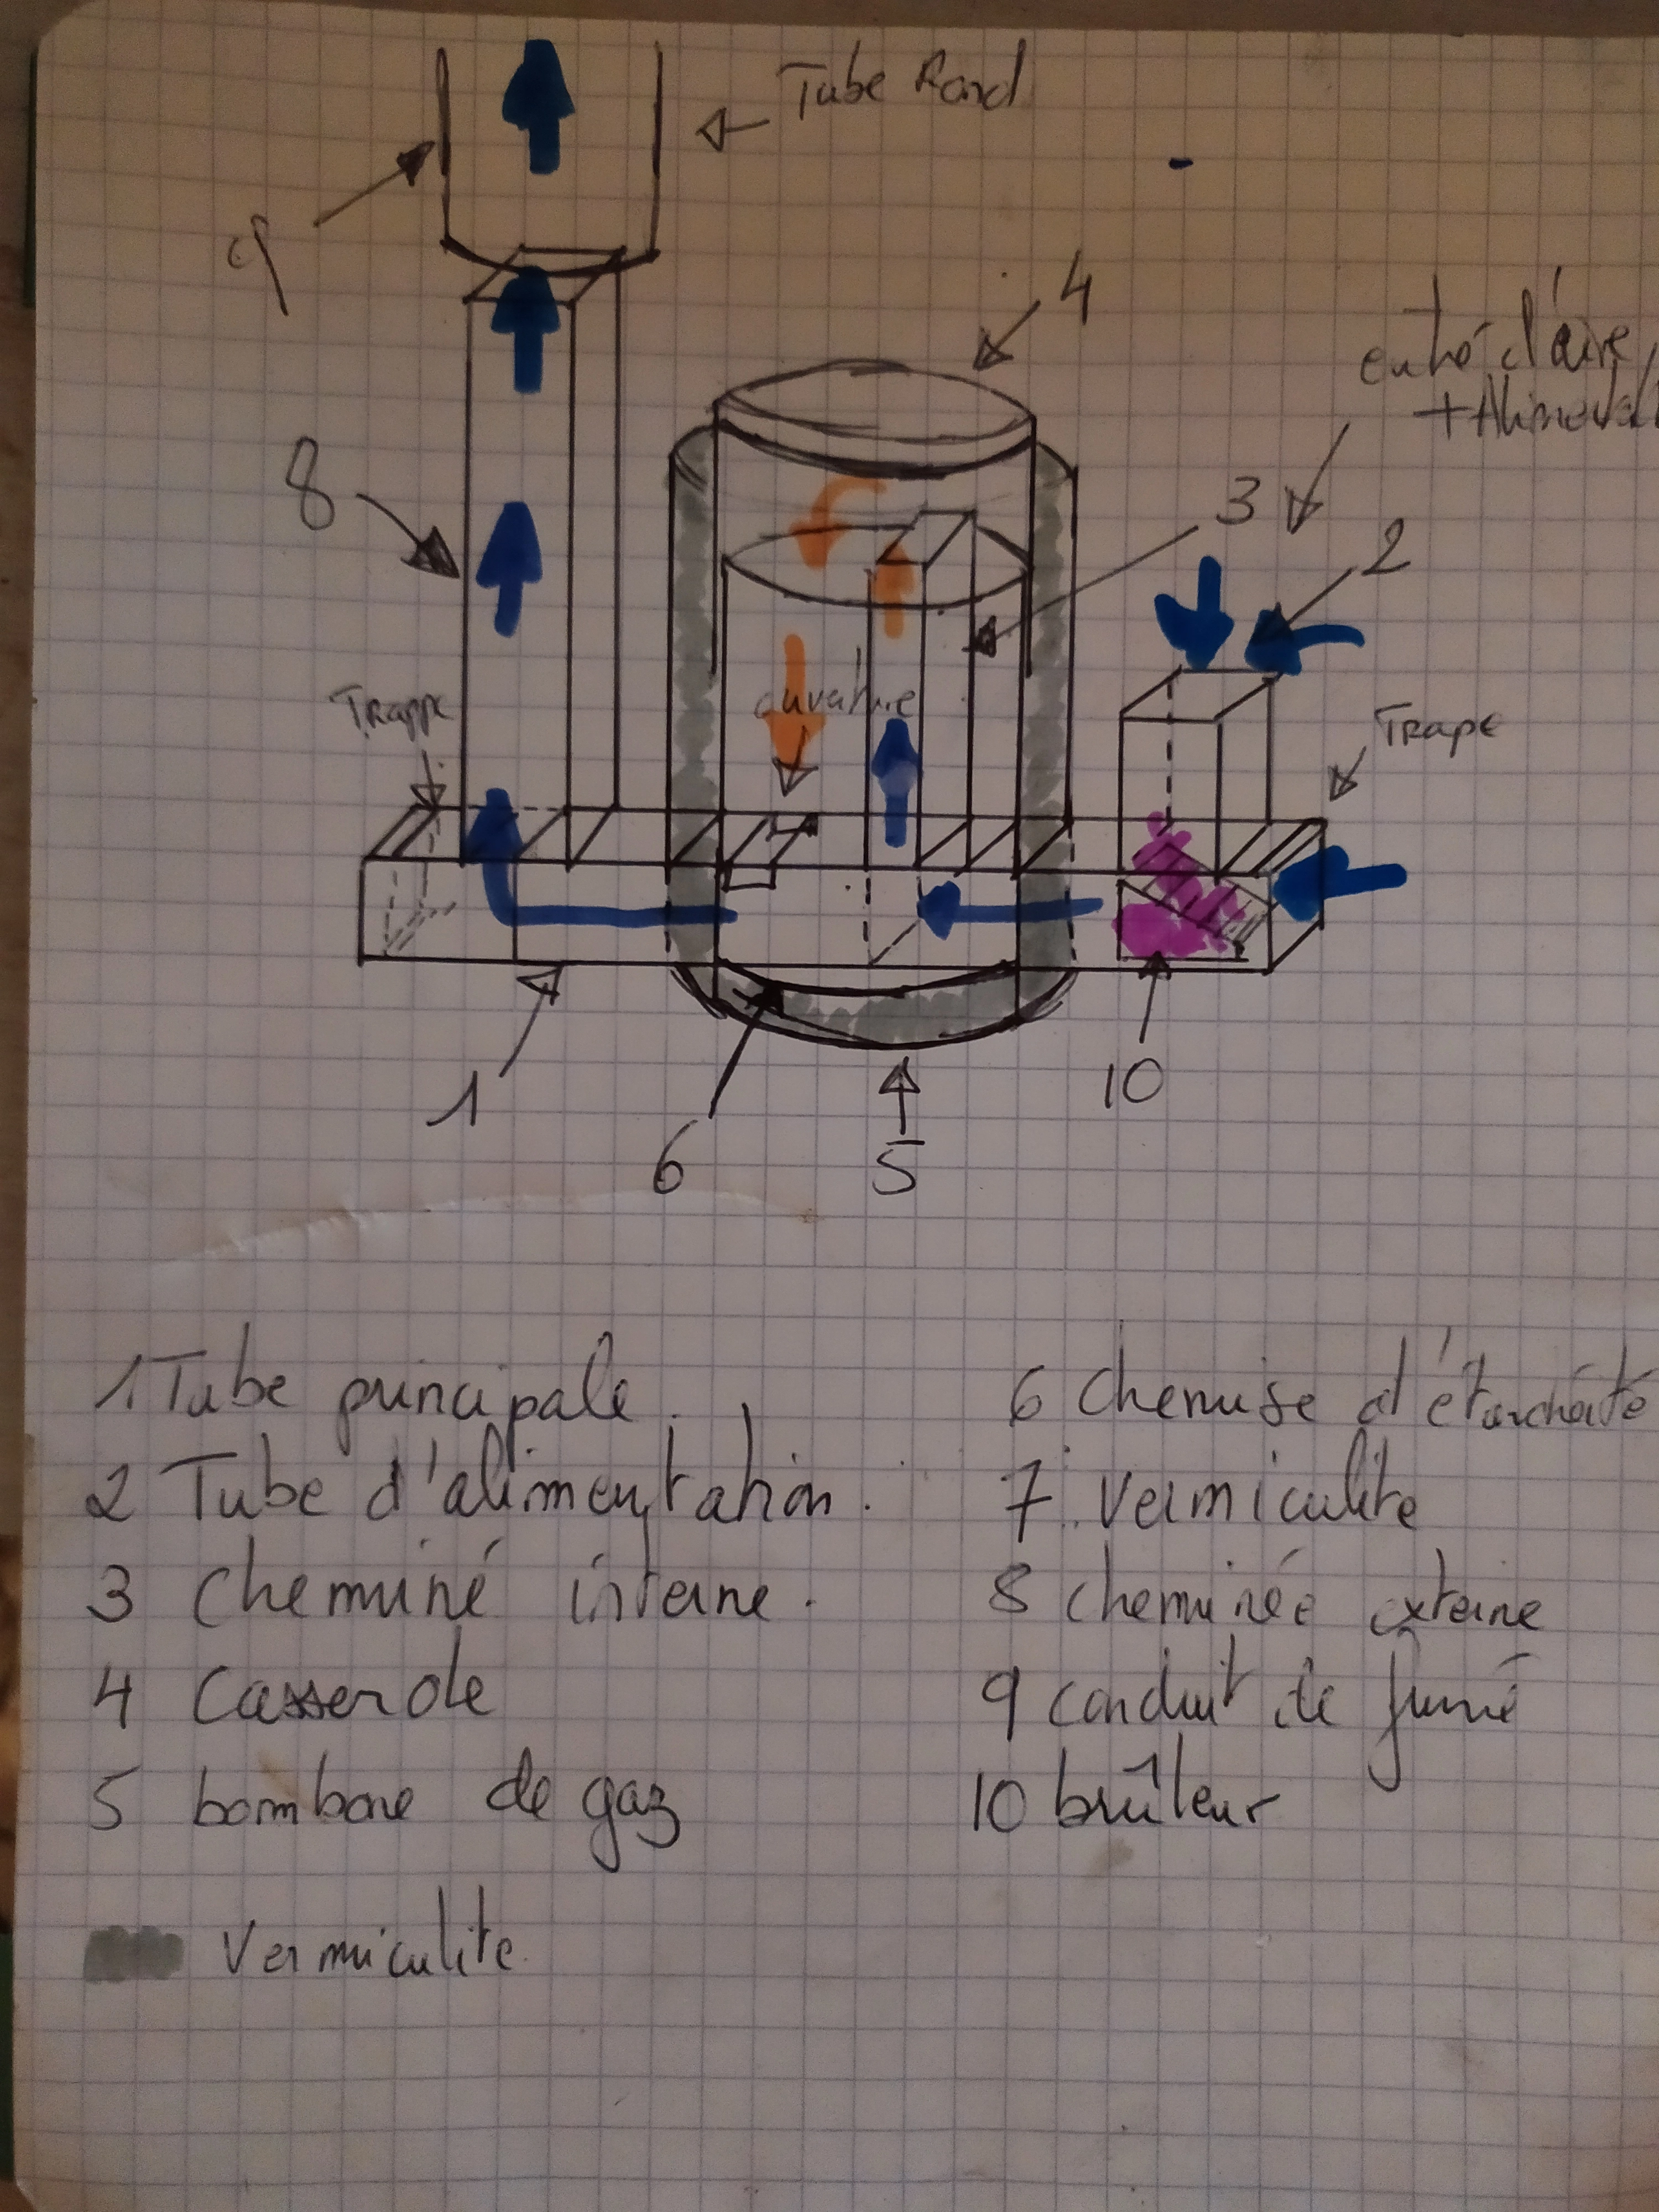 Tube Rond
9
4
entré d'aire
8
3
2
Trappe
ouverture
Trape
1
6
5
10
1 Tube principale.
2 Tube d'alimentation.
3 Cheminé interne.
4 Casserole
5 bombone de gaz
Vermiculite
6 Chemise d'étanchéité
7 : Vermiculite
8 cheminée externe
9 conduit de fumé
10 brûleur